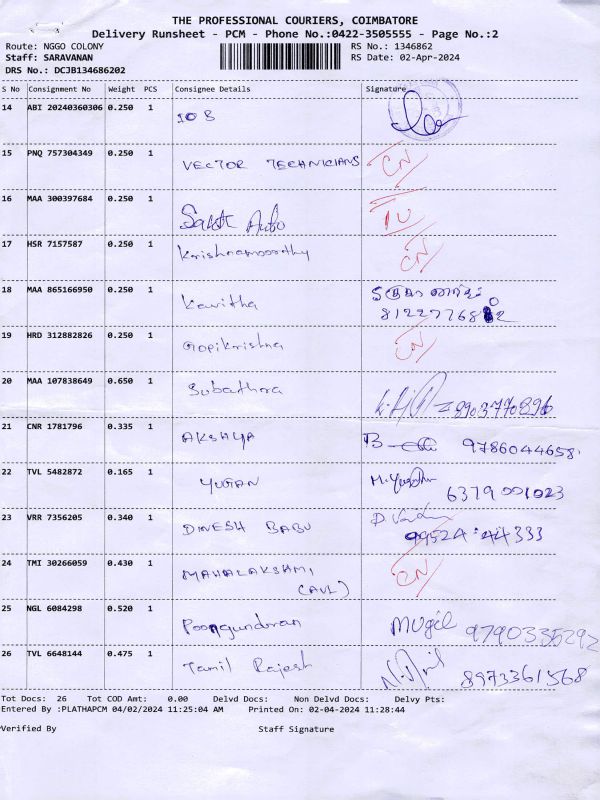 THE PROFESSIONAL COURIERS, COIMBATORE
Delivery Runsheet - PCM - Phone No.:0422-3505555 - Page No.:2
Route: NGGO COLONY RS No.: 1346862
Staff: SARAVANAN RS Date: 02-Apr-2024
DRS No.: DCJB134686202
S No Consignment No Weight PCS Consignee Details Signature
14 ABI 20240360306 0.250 1 IOB
15 PNQ 757304349 0.250 1 VECTOR TECHNICIANS CN
16 MAA 300397684 0.250 1 Sakt Auto IU
17 HSR 7157587 0.250 1 Krishnamoorthy CN
18 MAA 865166950 0.250 1 Kavitha
19 HRD 312882826 0.250 1 Gopikrishna CN
20 MAA 107838649 0.650 1 Subathra 8903770896
21 CNR 1781796 0.335 1 AKSHYA 9786044658
22 TVL 5482872 0.165 1 YUGAN 6379001023
23 VRR 7356205 0.340 1 DINESH BABU 99524 44333
24 TMI 30266059 0.430 1 MAHALAKSHMI CN
(AVL)
25 NGL 6084298 0.520 1 Poongundran Mugil 9790335292
26 TVL 6648144 0.475 1 Tamil Rajesh 8973361568
Tot Docs: 26 Tot COD Amt: 0.00 Delvd Docs: Non Delvd Docs: Delvy Pts:
Entered By :PLATHAPCM 04/02/2024 11:25:04 AM Printed On: 02-04-2024 11:28:44
Verified By Staff Signature